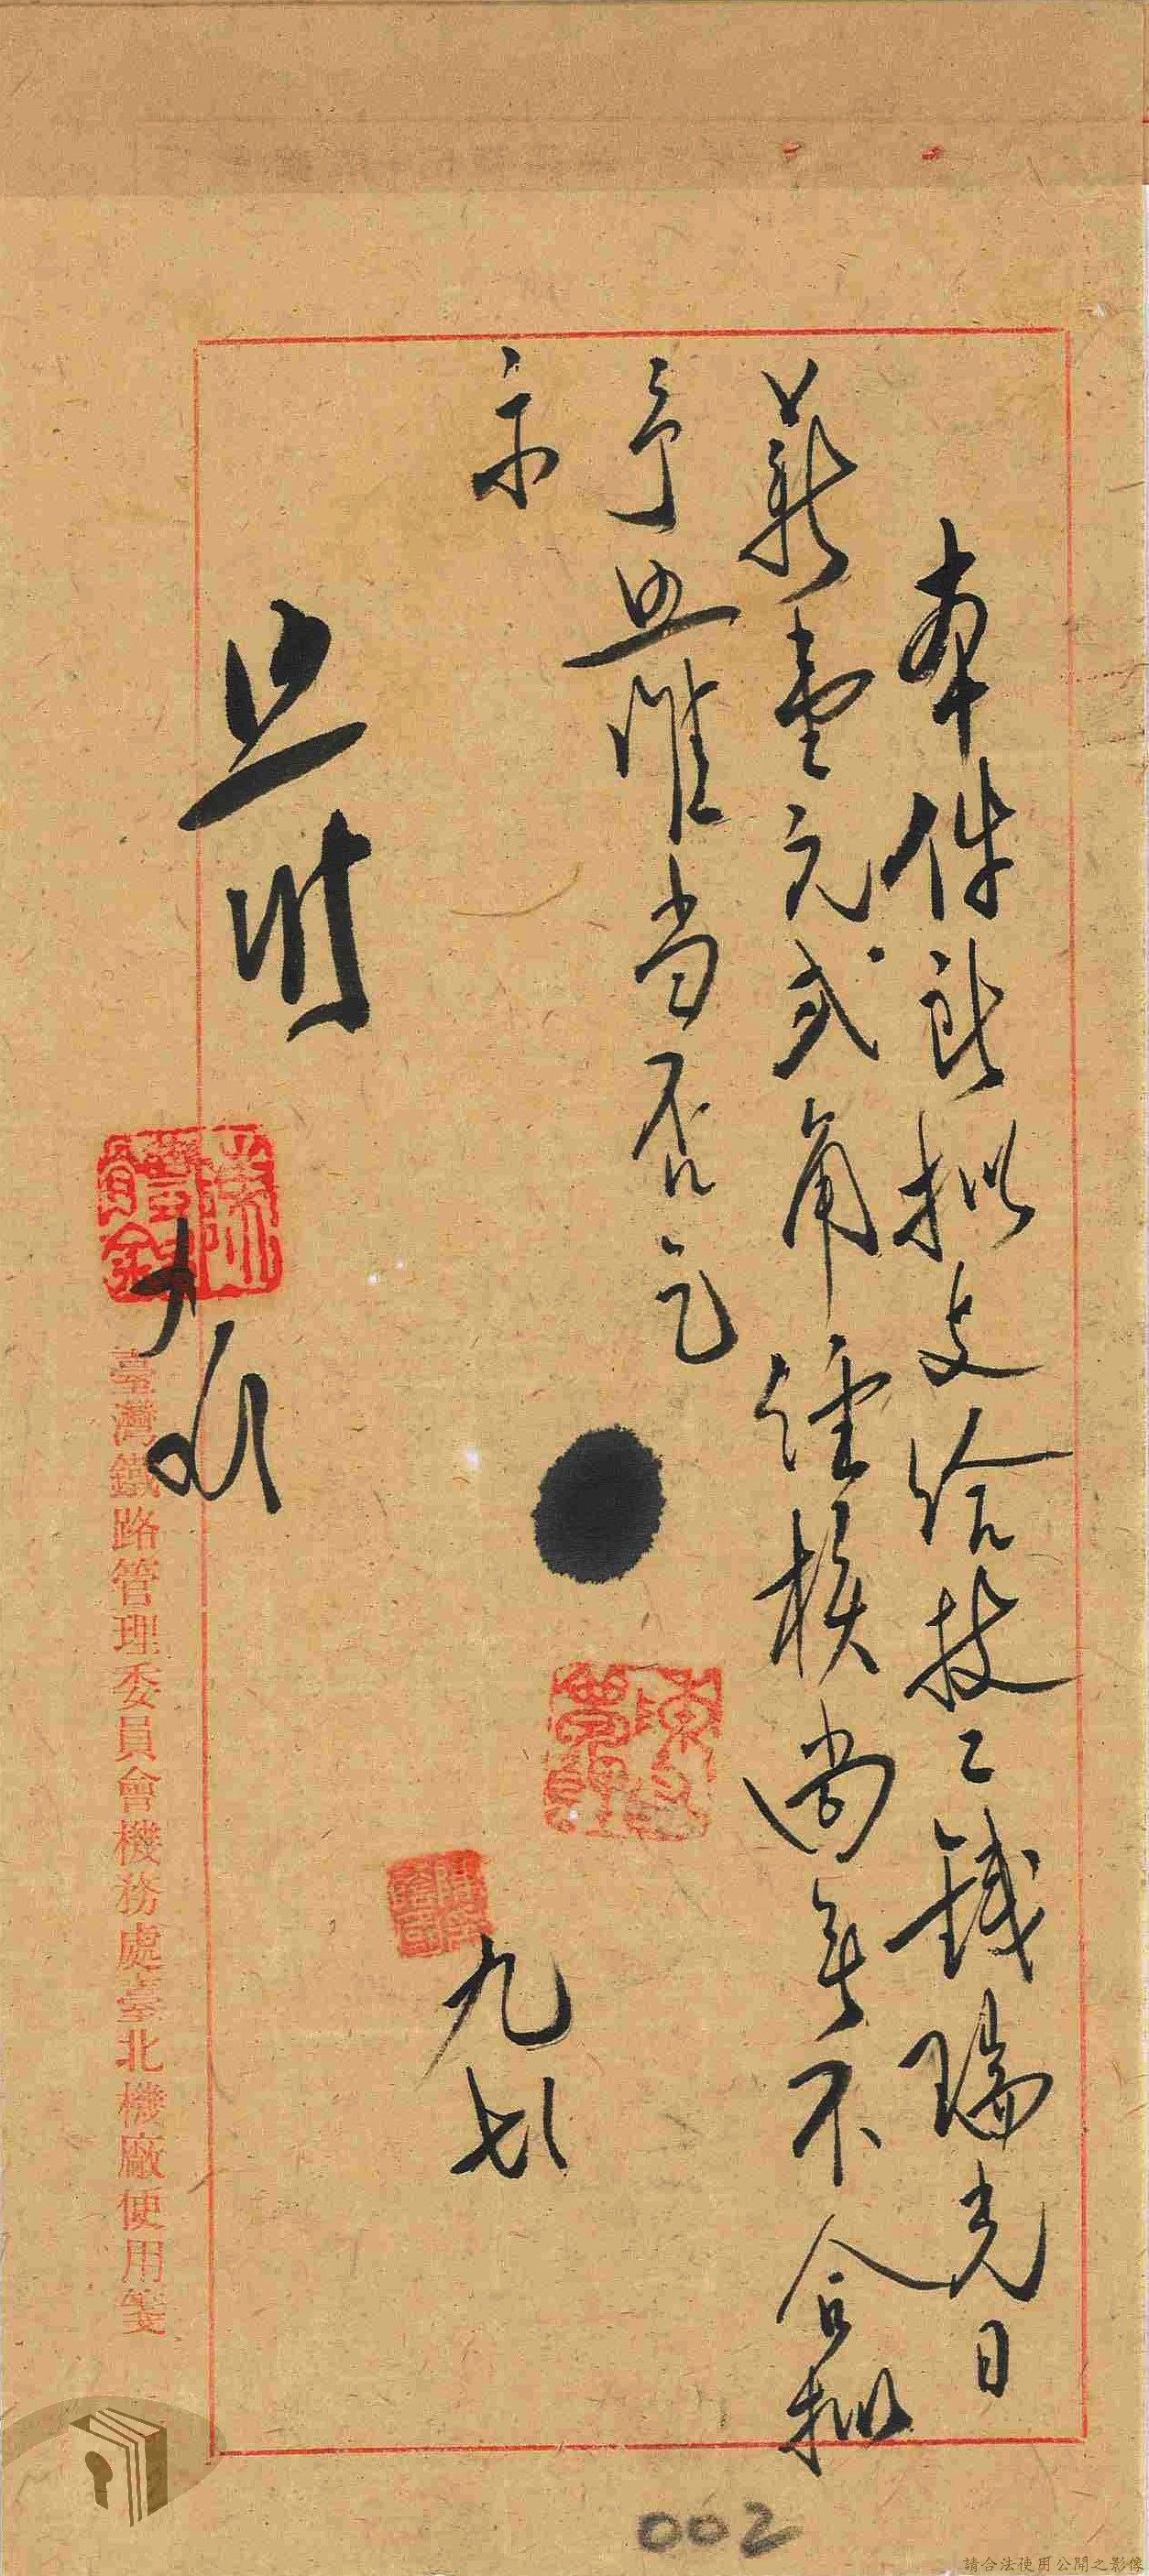 本件報擬支給技工錢瑞光日
薪壹元弍角經核尚無不合擬
予照准當否乞
示
九 七
照附
臺灣鐵路管理委員會機務處臺北機廠便用箋
002
請合法使用公開之影像